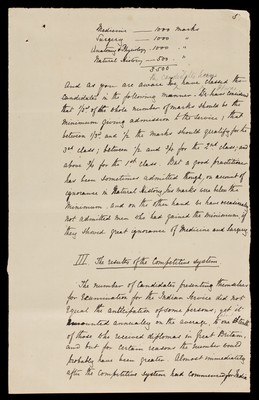 5.
Medicine — 1000 marks
Surgery — 1000 "
Anatomy & Physiology . 1000 "
Natural History — 500 . "
3500
And as you are aware we have classed the
Candidates in the following manner. We have considered
that 1/3rd of the whole number of marks should be the
minimum giving admission to the service; that
between 1/3rd and 1/2 the marks should qualify for the
3rd class; between 1/2 and 2/3 for the 2nd class; and
above 2/3 for the 1st class. But a good practitioner
has been sometimes admitted though, on account of
ignorance in Natural history, his marks were below the
minimum, and on the other hand we have occasionally
not admitted men who had gained the minimum if
they showed great ignorance of Medicine and Surgery.
III. The results of the Competitive System
The number of Candidates presenting themselves
for Examination for the Indian Service did not
equal the anticipation of some persons; yet it
amounted annually on the average to one
of those who received diplomas in Great Britain,
and but for certain reasons the number would
probably have been greater. Almost immediately
after the Competitive System had commenced for India